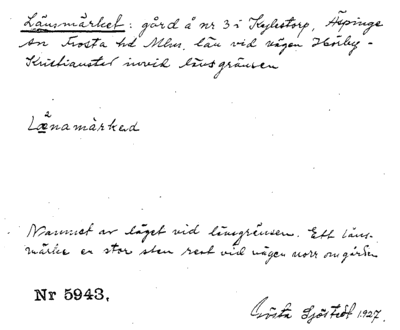 Länsmärket: gård å nr 3 i Kylestorp, Äspinge
sn Frosta hd Mlm. län vid vägen Hörby-
Kristianstad invid länsgränsen
Læ²namárked
Namnet av läget vid länsgränsen. Ett läns-
märke en stor sten rest vid vägen norr om gården
Nr 5943.
Gösta Sjöstedt 1927.